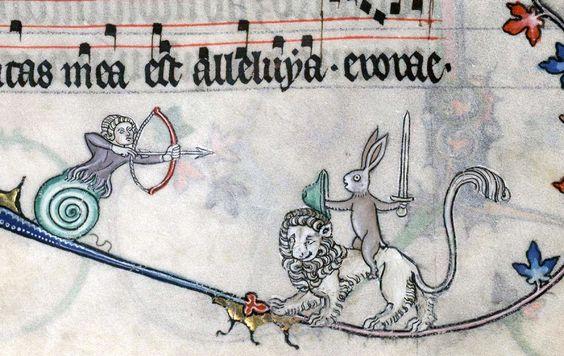 tas mea est alleluya · evovae ·